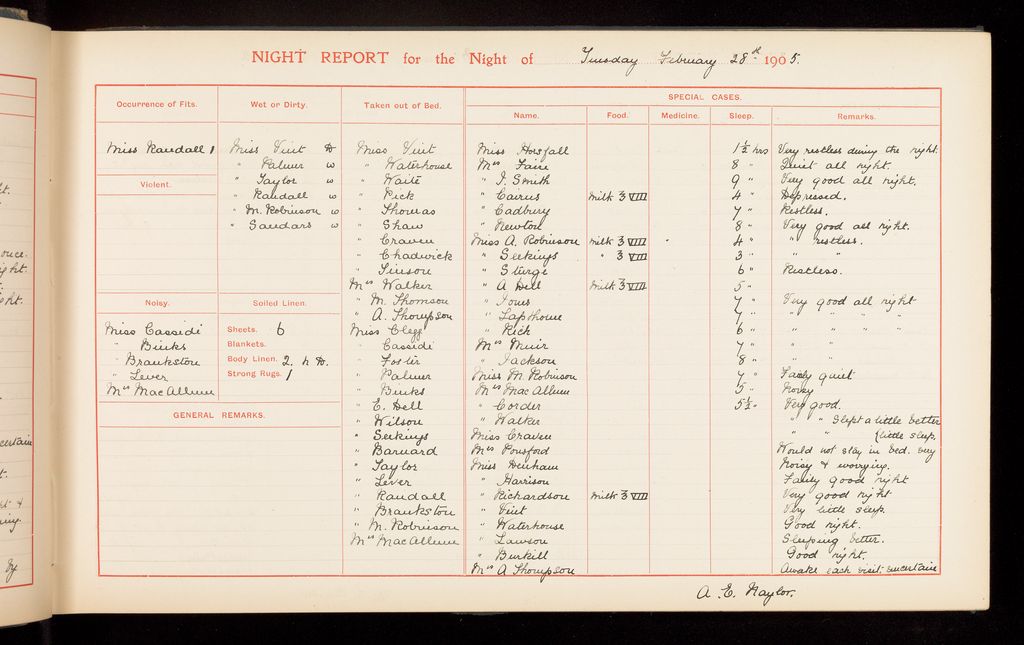 NIGHT REPORT for the Night of Tuesday February 28th 1905.
Occurrence of Fits.
Miss Randall 1
Violent.
Noisy.
Miss Cassidi
" Binks
" Brankston
" Lever
Mrs MacAllum
Wet or Dirty.
Miss Vint D
" Palmer w
" Taylor w
" Randall w
" M. Robinson w
" Sandars w
Soiled Linen.
Sheets. 6
Blankets.
Body Linen. 2. N D.
Strong Rugs. 1
GENERAL REMARKS.
Taken out of Bed.
Miss Vint
" Waterhouse
" Waite
" Rick
" Thomas
" Shaw
" Craven
" Chadwick
" Sinson
Mrs Walker
" M. Thomson
" A. Thompson
Miss Clegg
" Cassidi
" Foster
" Palmer
" Binks
" E. Hell
" Wilson
" Seekings
" Barnard
" Taylor
" Lever
" Randall
" Brankston
" M. Robinson
Mrs MacAllum
SPECIAL CASES.
Name. Food. Medicine. Sleep. Remarks.
Miss Horsfall 1½ hrs Very restless during the night.
Mrs Fane 8 " Quiet all night.
" J. Smith 9 " Very good all night.
" Cairns Milk ℥ VIII 4 " Depressed.
" Cadbury 7 " Restless.
" Newton 8 " Very good all night.
Miss A. Robinson Milk ℥ VIII " 4 " " restless.
" Seekings " ℥ VIII 3 " " "
" Sturge 6 " Restless.
" A Hell Milk ℥ VIII 5 "
" Jones 7 " Very good all night
" Lapthorne 7 " " " " "
" Rick 6 " " " " "
Mrs Muir 7 " " "
" Jackson 8 " " "
Miss M. Robinson 7 " Fairly quiet
Mrs MacAllum 5 " Noisy
" Corder 5½ " Very good.
" Walker " " Slept a little better
Miss Craven " " {little sleep.
Mrs Ponsford Would not stay in bed. Very
Miss Denham Noisy & worrying.
" Harrison Fairly good night
" Richardson Milk ℥ VIII Very good night
" Vint Very little sleep.
" Waterhouse Good night.
" Lawson Sleeping better.
" Burkill Good night.
Mrs A Thompson Awake each visit: uncertain
A. E. Naylor.